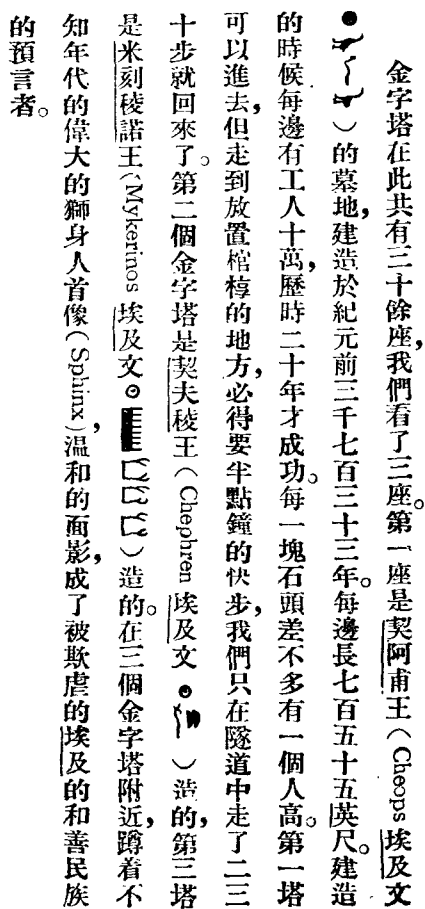 金字塔在此共有三十餘座，我們看了三座。第一座是契阿甫王（Cheops 埃及文
）的墓地，建造於紀元前三千七百三十三年。每邊長七百五十五英尺。建造
的時候每邊有工人十萬，歷時二十年才成功。每一塊石頭差不多有一個人高。第一塔
可以進去，但走到放置棺椁的地方，必得要半點鐘的快步，我們只在隧道中走了二三
十步就回來了。第二個金字塔是契夫稜王（Chephren 埃及文 ）造的，第三塔
是米刻稜諾王（Mykerinos 埃及文 ）造的。在三個金字塔附近，蹲着不
知年代的偉大的獅身人首像（Sphinx），温和的面影，成了被欺虐的埃及的和善民族
的預言者。